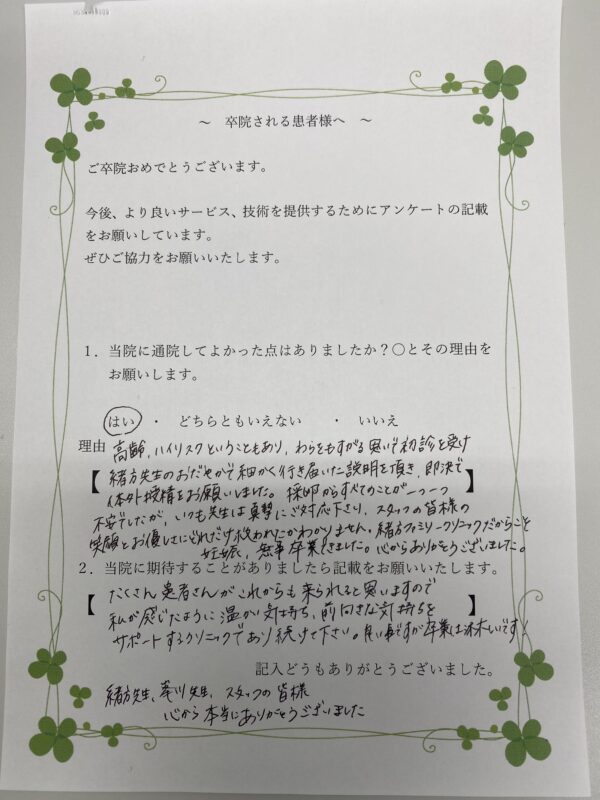 ～ 卒院される患者様へ ～
ご卒院おめでとうございます。
今後、より良いサービス、技術を提供するためにアンケートの記載
をお願いしています。
ぜひご協力をお願いいたします。
1．当院に通院してよかった点はありましたか？〇とその理由を
お願いします。
はい ・ どちらともいえない ・ いいえ
理由 高齢、ハイリスクということもあり、わらをもすがる思いで初診を受け
【 緒方先生のおだやかで細かく行き届いた説明を頂き、即決で 】
体外授精をお願いしました。採卵からすべてのことが一つ一つ
不安でしたが、いつも先生は真摯にご対応下さり、スタッフの皆様の
笑顔とお優しさにどれだけ救われたかわかりません。緒方ファミリークリニックだからこそ
妊娠、無事卒業できました。心からありがとうございました。
2．当院に期待することがありましたら記載をお願いいたします。
【 たくさん患者さんがこれからも来られると思いますので 】
私が感じたように温かい気持ち、前向きな気持ちを
サポートするクリニックであり続けて下さい。良い事ですが卒業は淋しいです！
記入どうもありがとうございました。
緒方先生、滝川先生、スタッフの皆様
心から本当にありがとうございました